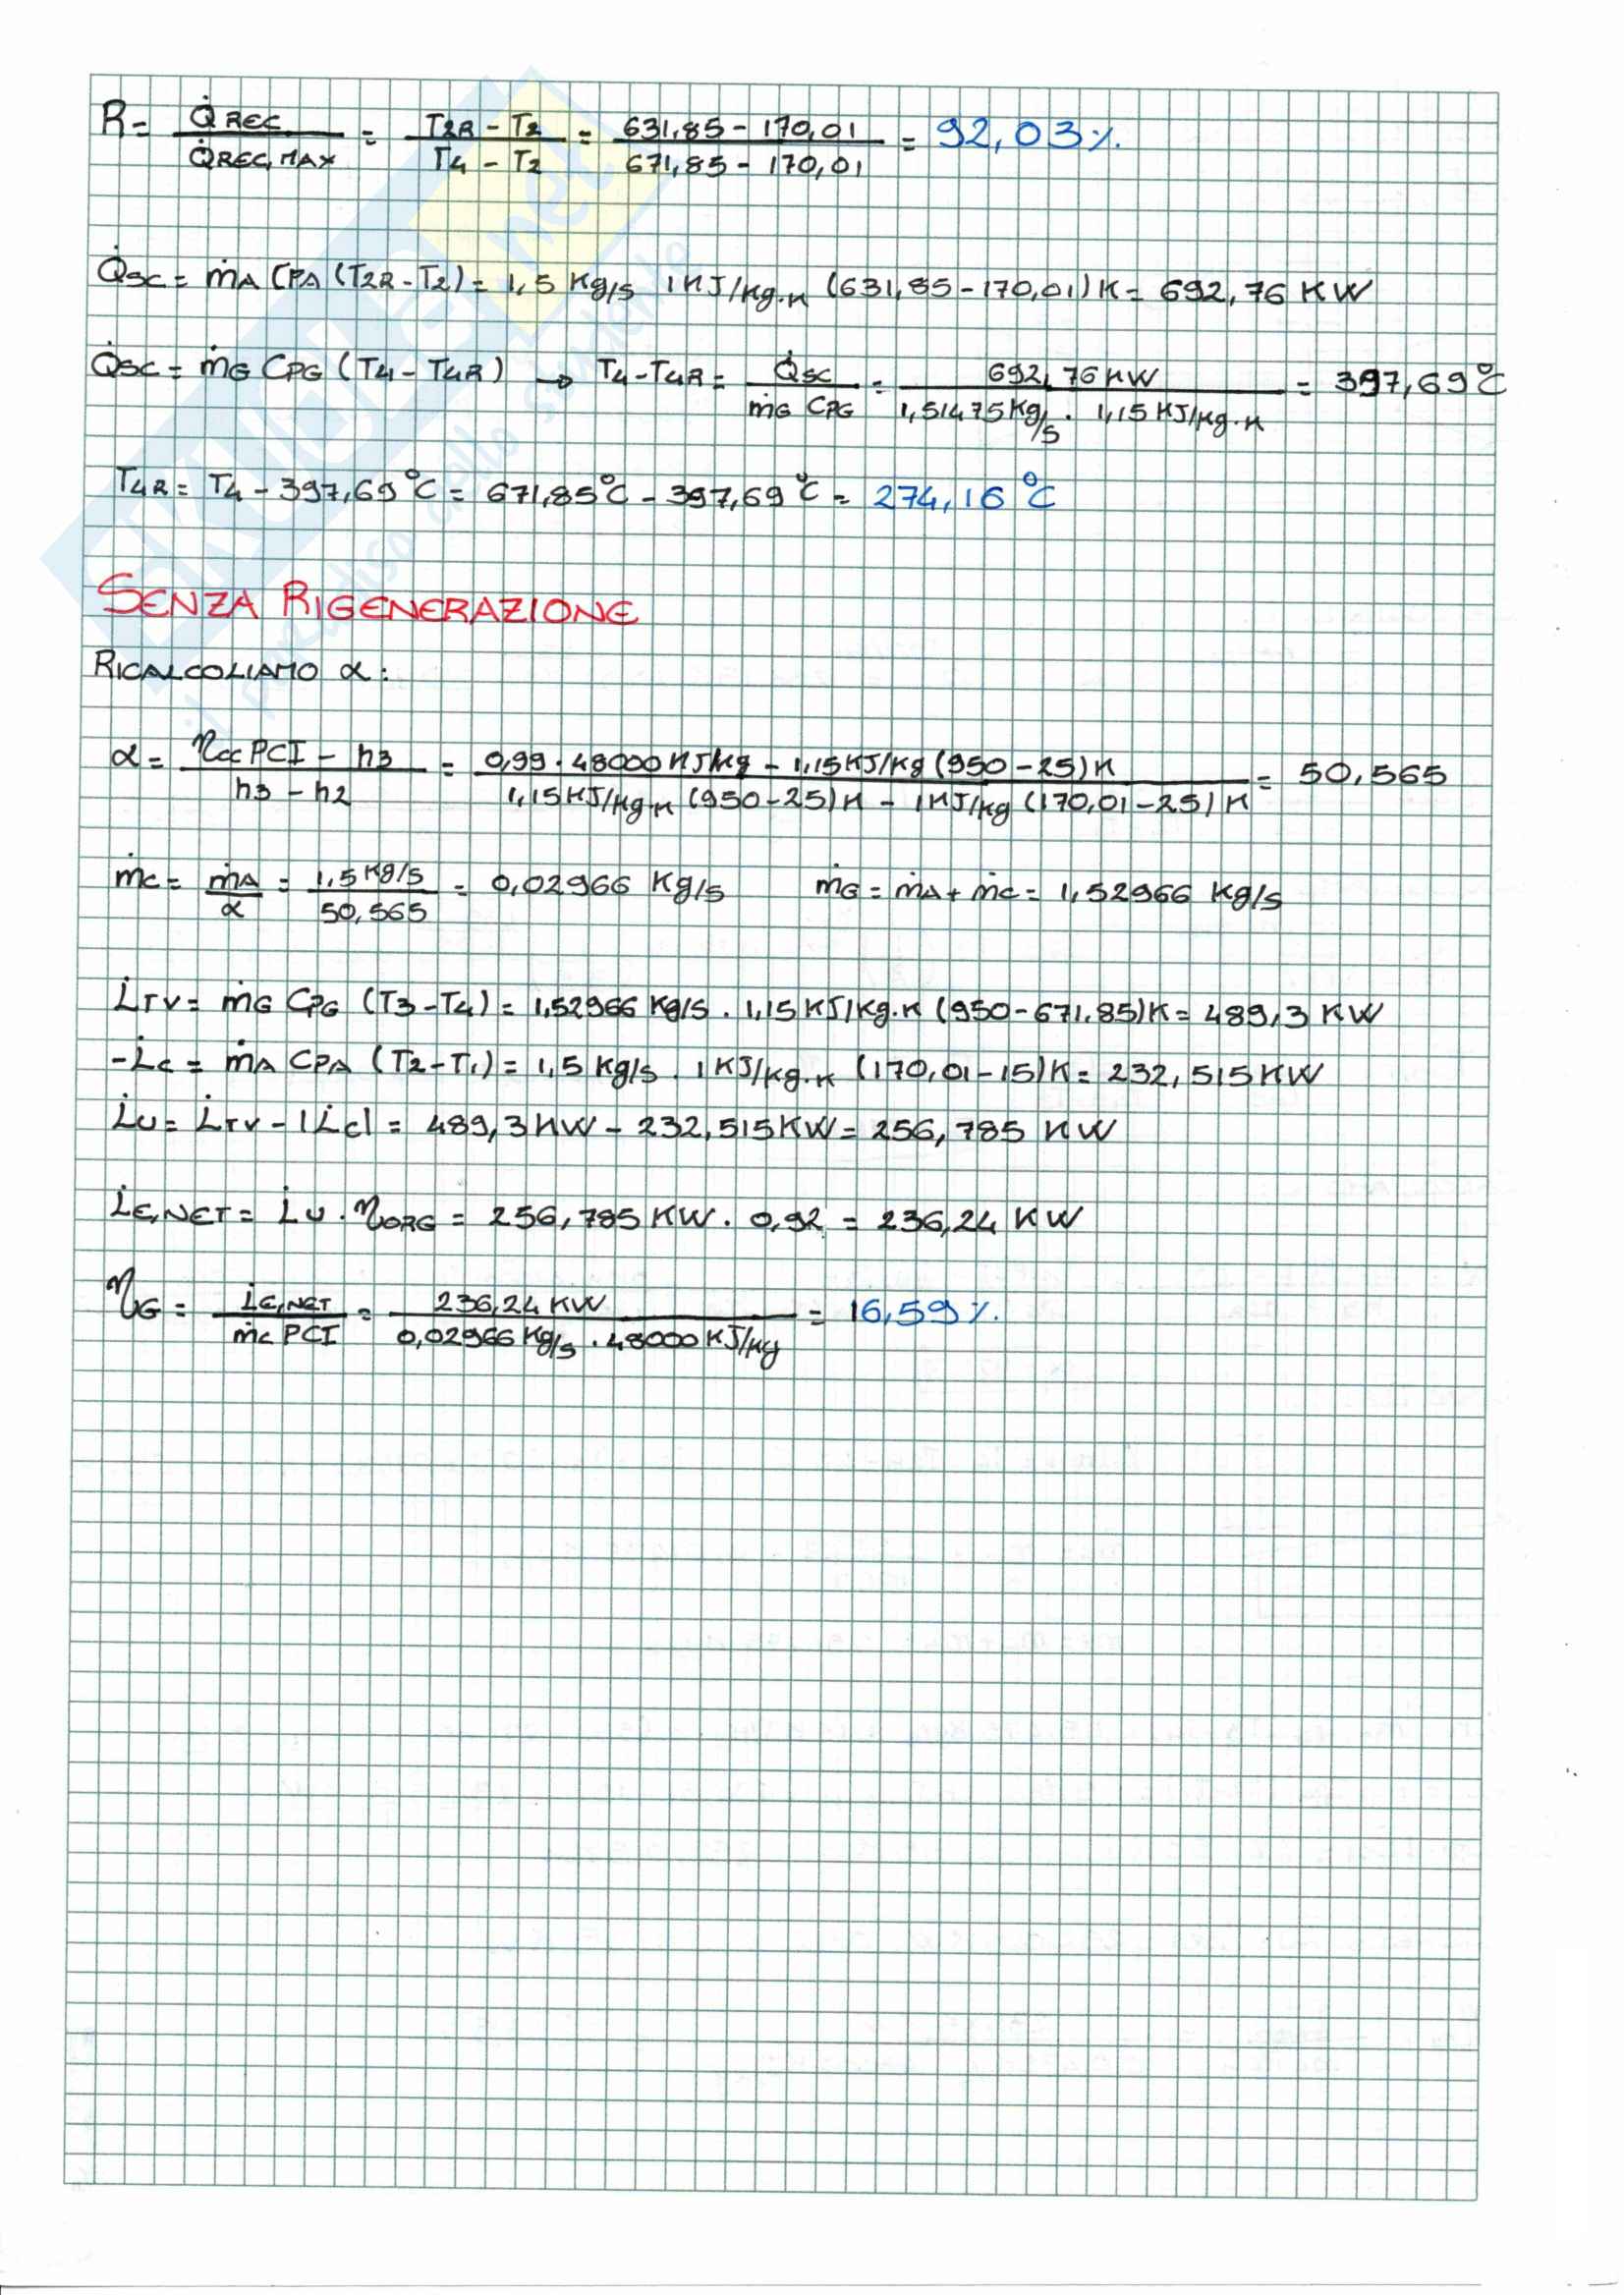 R = Q̇REC / Q̇REC,MAX = T2R - T2 / T4 - T2 = 631,85 - 170,01 / 671,85 - 170,01 = 92,03%
Q̇SC = ṁA CPA (T2R - T2) = 1,5 Kg/s 1 KJ/Kg·K (631,85 - 170,01) K = 692,76 KW
Q̇SC = ṁG CPG (T4 - T4R) → T4 - T4R = Q̇SC / ṁG CPG = 692,76 KW / 1,51475 Kg/s · 1,15 KJ/Kg·K = 397,69 °C
T4R = T4 - 397,69 °C = 671,85 °C - 397,69 °C = 274,16 °C
SENZA RIGENERAZIONE
RICALCOLIAMO α:
α = ηcc PCI - h3 / h3 - h2 = 0,99 · 48000 KJ/Kg - 1,15 KJ/Kg (950 - 25) K / 1,15 KJ/Kg·K (950 - 25) K - 1 KJ/Kg (170,01 - 25) K = 50,565
ṁc = ṁA / α = 1,5 Kg/s / 50,565 = 0,02966 Kg/s ṁG = ṁA + ṁc = 1,52966 Kg/s
L̇TV = ṁG CPG (T3 - T4) = 1,52966 Kg/s · 1,15 KJ/Kg·K (950 - 671,85) K = 489,3 KW
-L̇c = ṁA CPA (T2 - T1) = 1,5 Kg/s · 1 KJ/Kg·K (170,01 - 15) K = 232,515 KW
L̇U = L̇TV - |L̇c| = 489,3 KW - 232,515 KW = 256,785 KW
L̇E,NET = L̇U · ηORG = 256,785 KW · 0,92 = 236,24 KW
ηG = L̇E,NET / ṁc PCI = 236,24 KW / 0,02966 Kg/s · 48000 KJ/Kg = 16,59%
SKUOLA.net
il paradiso dello studente